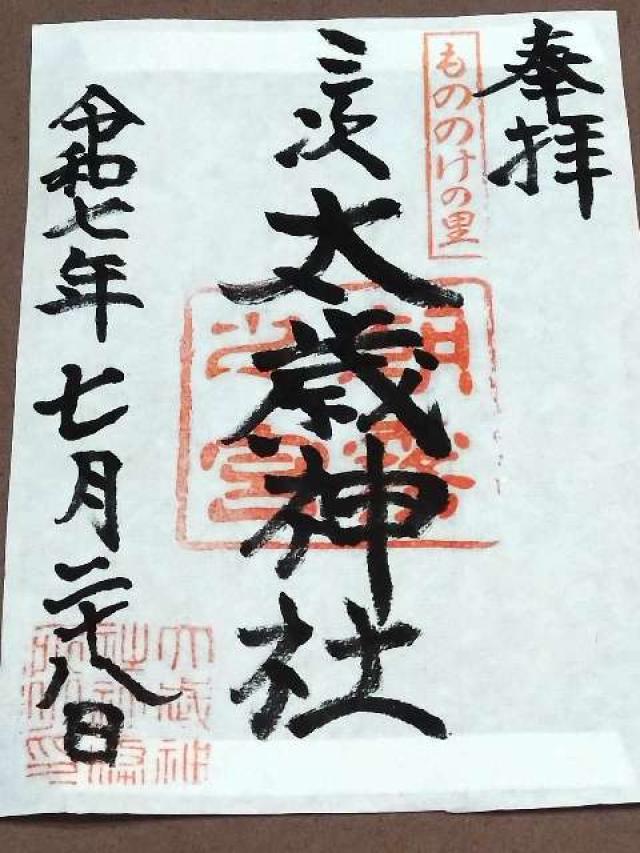 奉拝
もののけの里
三次
太歳神社
令和七年七月二十八日